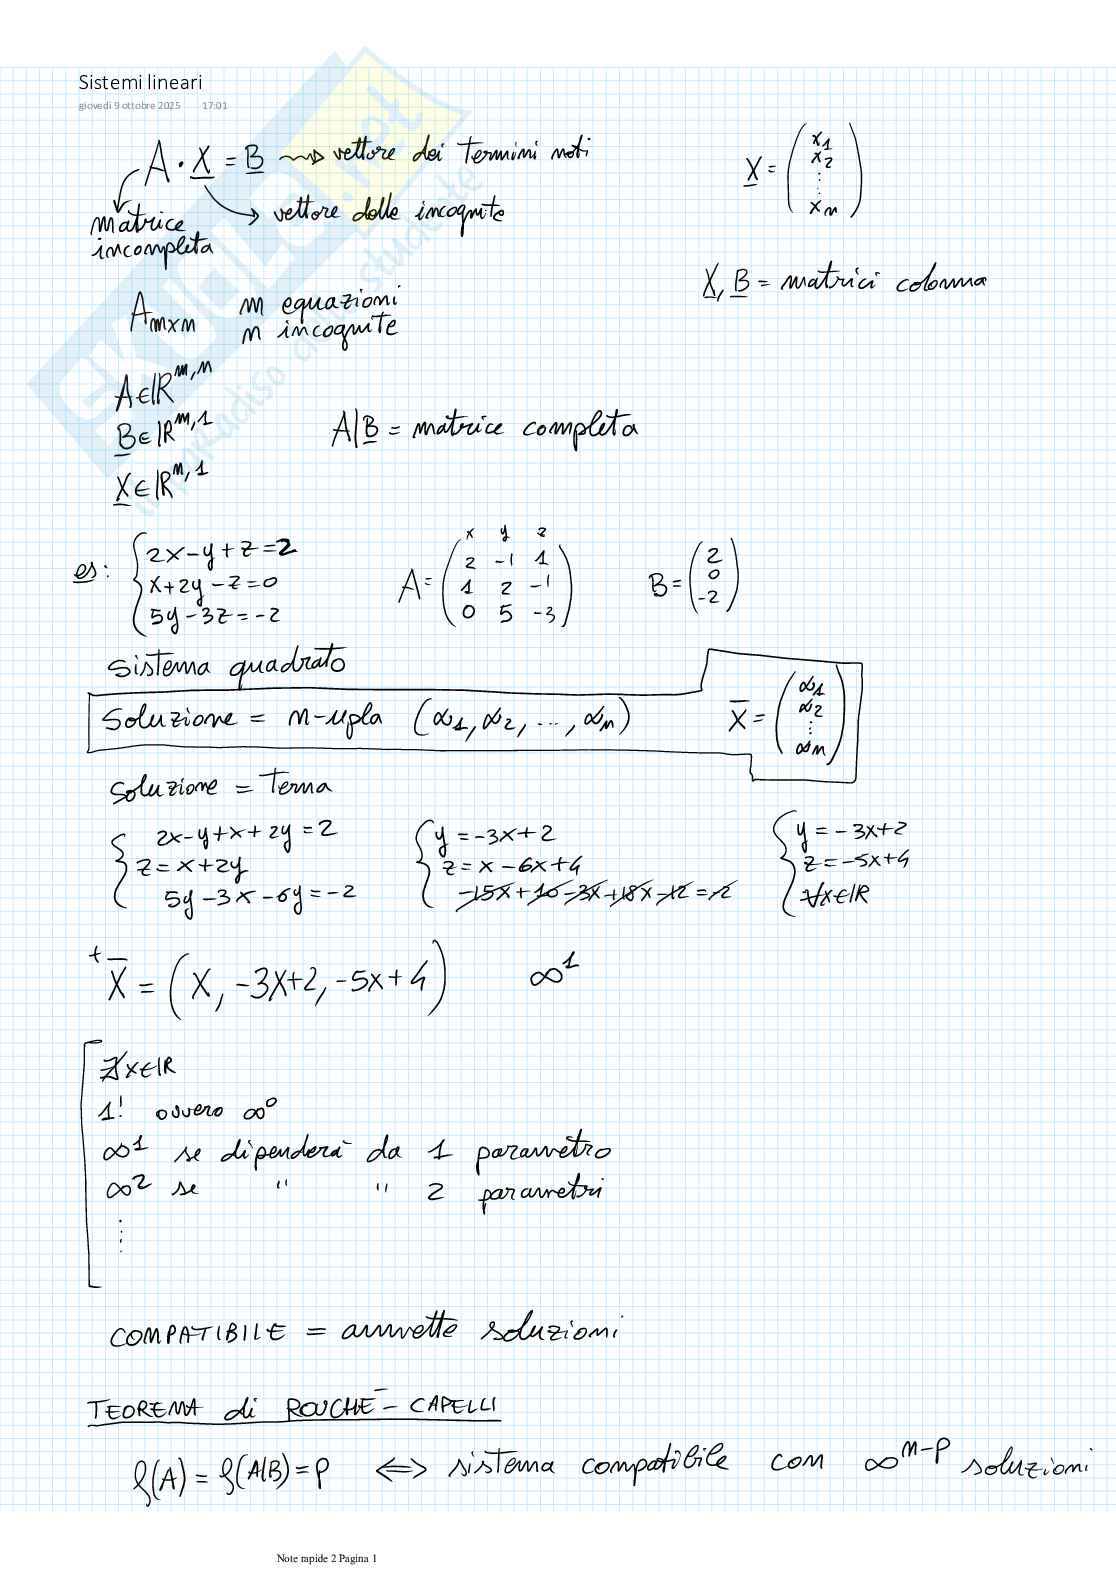 Sistemi lineari
giovedì 9 ottobre 2025 17:01
A · X = B ⟿ vettore dei termini noti
X = (x1 x2 ⋮ xn)
matrice incompleta
→ vettore delle incognite
X, B = matrici colonna
Amxn
m equazioni
n incognite
A∈ℝ^m,n
B∈ℝ^m,1
A|B = matrice completa
X∈ℝ^n,1
es:
{2x-y+z=2
x+2y-z=0
5y-3z=-2
x y z
A= (2 -1 1
1 2 -1
0 5 -3)
B= (2
0
-2)
Sistema quadrato
Soluzione = n-upla (α1, α2, ..., αn)
X̄ = (α1 α2 ⋮ αn)
Soluzione = Terna
{2x-y+x+2y=2
z=x+2y
5y-3x-6y=-2
{y=-3x+2
z=x-6x+4
-15x+10-3x+18x-12=-2
{y=-3x+2
z=-5x+4
∀x∈ℝ
t X̄ = (x, -3x+2, -5x+4) ∞^1
∄x∈ℝ
1! ovvero ∞^0
∞^1 se dipenderà da 1 parametro
∞^2 se " " 2 parametri
⋮
COMPATIBILE = ammette soluzioni
TEOREMA di ROUCHÉ - CAPELLI
ρ(A) = ρ(A|B) = p ⟺ sistema compatibile con ∞^n-p soluzioni
Note rapide 2 Pagina 1